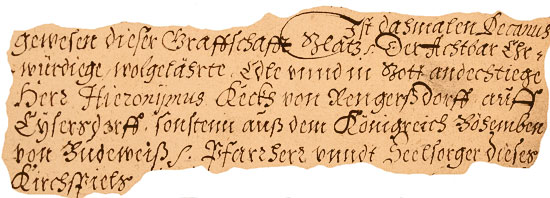 Ist dasmalen Decanus
gewesen dieser Graffschafft Glatz, Der Achtbar Ehr-
würdiege wolgelährte, Edle vnnd in Gott andechtiege
Herr Hieronijmus Kecks von Rengerßdorff, auff
Eysersdorff, sonstenn auß dem Königreich Böhemben
von Budeweiß, Pfarrherr vnndt Seelsorger dieses
Kirchspiels